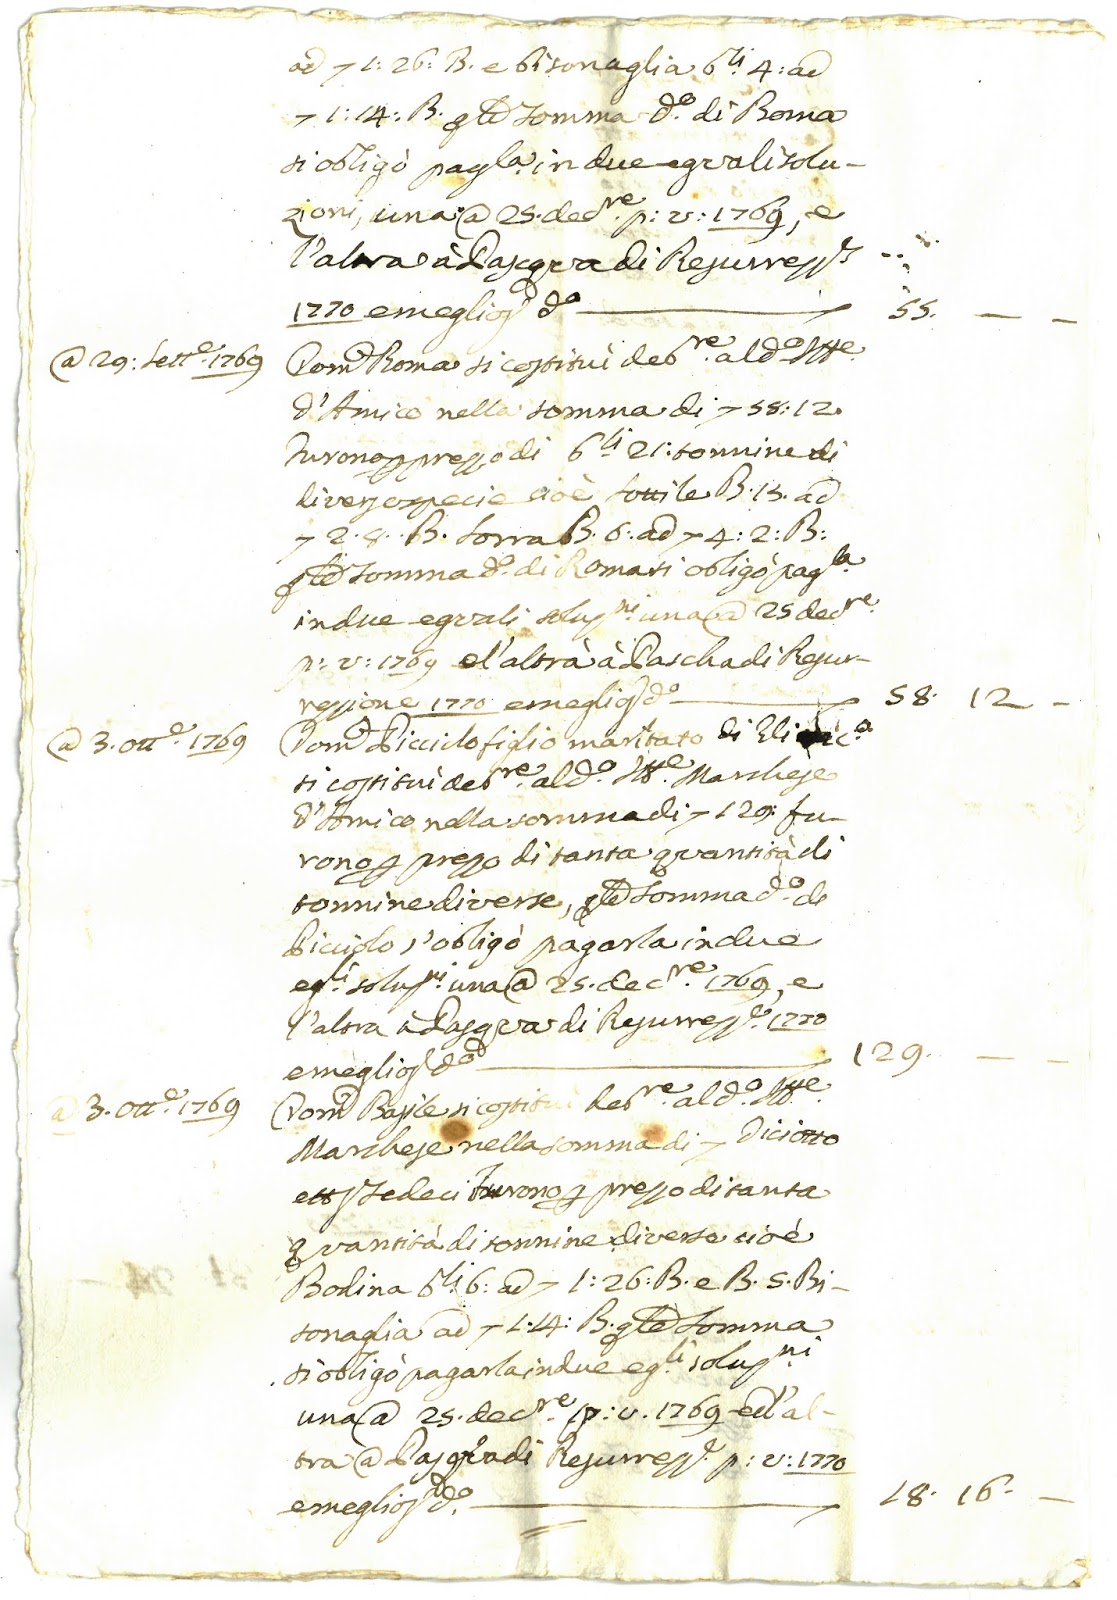 ad 7 1: 26: B. e bisonaglia b.li 4: ad
7 1: 14: B. qle somma d.o di Roma
si obligò pagla in due eguali solu-
zioni, una @ 25. decre. p: v: 1769, e
l'altra à Pasqua di Resurrezze
1770 e meglio d.o 55. — —
@ 29: Sett.e 1769 Dom.co Roma si costituì deb.re al d.o Ill.e
d'Amico nella somma di 7 58: 12.
furono p prezzo di b.li 21: tonnine di
diverse specie cioè sottile B. 15. ad
7 2. 8. B. sorra B. 6. ad 7 4: 2: B:
qle somma d.o di Roma si obligò pagla
in due eguali soluz.ni una @ 25 decre.
p: v: 1769 e l'altra à Pascha di Resur-
rezzione 1770 e meglio d.o 58. 12 —
@ 3. ott.e 1769 Dom.co Picciolo figlio maritato di
si costituì deb.re al d.o Ill.e Marchese
d'Amico nella somma di 7 129: fu-
rono p prezzo di tanta quantità di
tonnine diverse, qle somma d.o di
Picciolo s'obligò pagarla in due
eg.li soluz.ni una @ 25. decre. 1769, e
l'altra à Pasqua di Resurrezz.e 1770
e meglio d.o 129. — —
@ 3. Ott.e 1769 Dom.co Basile si costituì deb.re al d.o Ill.e
Marchese nella somma di 7 diciotto
e sedeci furono p prezzo di tanta
quantità di tonnine diverse cioè
Bodina b.li 6: ad 7 1: 26: B. e B. 5. Bi-
sonaglia ad 7 1. 14: B. qle somma
si obligò pagarla in due eg.li soluz.ni
una @ 25. decre. p: v. 1769 ed l'al-
tra @ Pasqua di Resurrezz.e p: v: 1770
e meglio d.o 18. 16. —